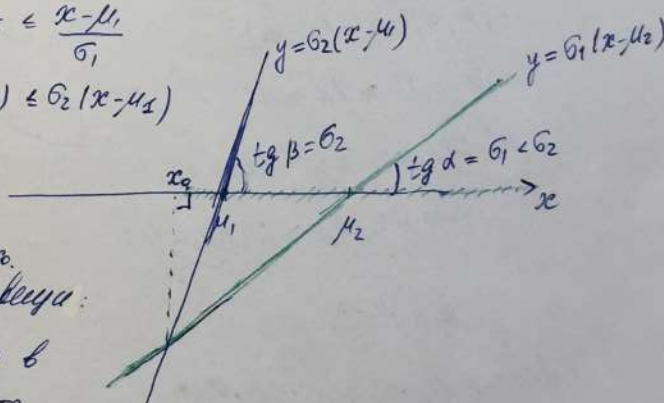 ≤ (x-μ₁)/σ₁
) ≤ σ₂(x-μ₁)
y=σ₂(x-μ₁)
y=σ₁(x-μ₂)
tg β=σ₂
tg α = σ₁ < σ₂
x₀
μ₁
μ₂
x
вещи:
в